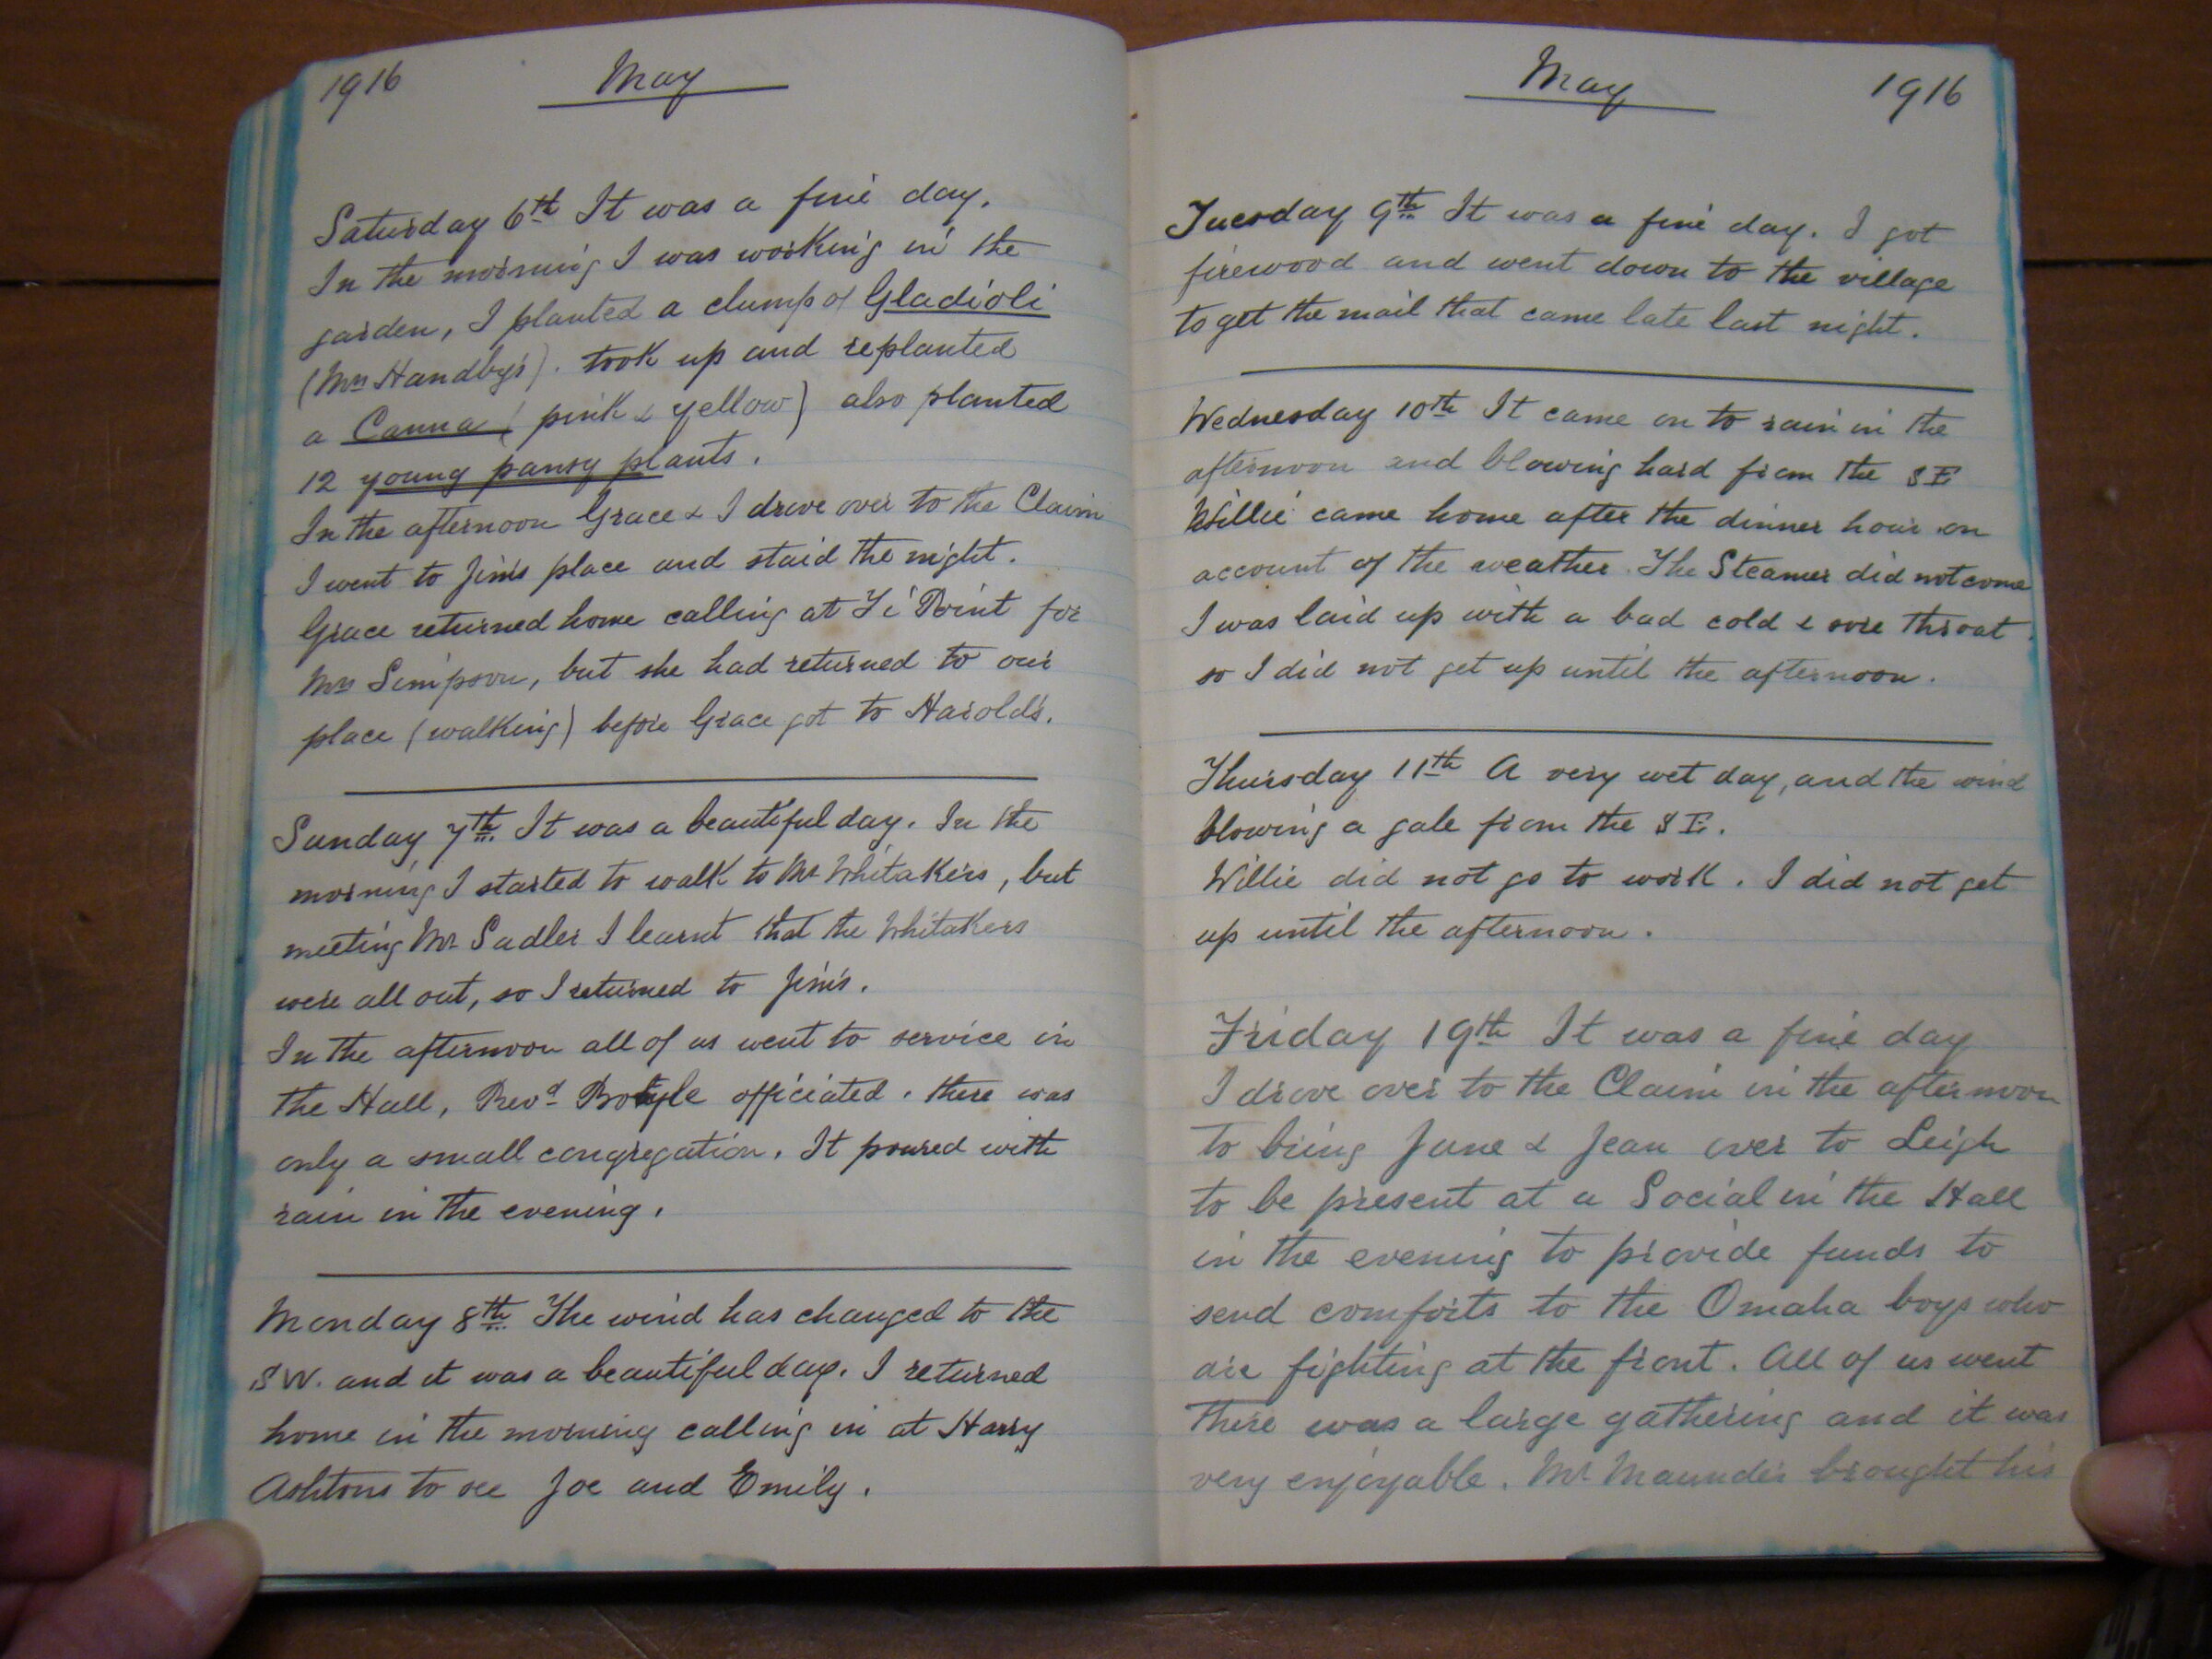 1916 May
Saturday 6th It was a fine day.
In the morning I was working in the
garden, I planted a clump of Gladioli
(Mrs Handby's). took up and replanted
a Canna (pink & yellow) also planted
12 young pansy plants.
In the afternoon Grace & I drove over to the Claim
I went to Jim's place and staid the night.
Grace returned home calling at Ti Point for
Mrs Simpson, but she had returned to our
place (walking) before Grace got to Harold's.
Sunday 7th. It was a beautiful day. In the
morning I started to walk to Mr Whitakers, but
meeting Mr Sadler I learnt that the Whitakers
were all out, so I returned to Jim's.
In the afternoon all of us went to service in
the Hall, Revd officiated. there was
only a small congregation. It poured with
rain in the evening.
Monday 8th. The wind has changed to the
SW. and it was a beautiful day. I returned
home in the morning calling in at Harry
Ashtons to see Joe and Emily.
May 1916
Tuesday 9th It was a fine day. I got
firewood and went down to the village
to get the mail that came late last night.
Wednesday 10th It came on to rain in the
afternoon and blowing hard from the SE
Willie came home after the dinner hour on
account of the weather. The Steamer did not come
I was laid up with a bad cold & sore throat
so I did not get up until the afternoon.
Thursday 11th A very wet day, and the wind
blowing a gale from the SE.
Willie did not go to work. I did not get
up until the afternoon.
Friday 19th It was a fine day
I drove over to the Claim in the afternoon
to bring June & Jean over to Leigh
to be present at a Social in the Hall
in the evening to provide funds to
send comforts to the Omaha boys who
are fighting at the front. All of us went
there was a large gathering and it was
very enjoyable. Mr Maunder brought his